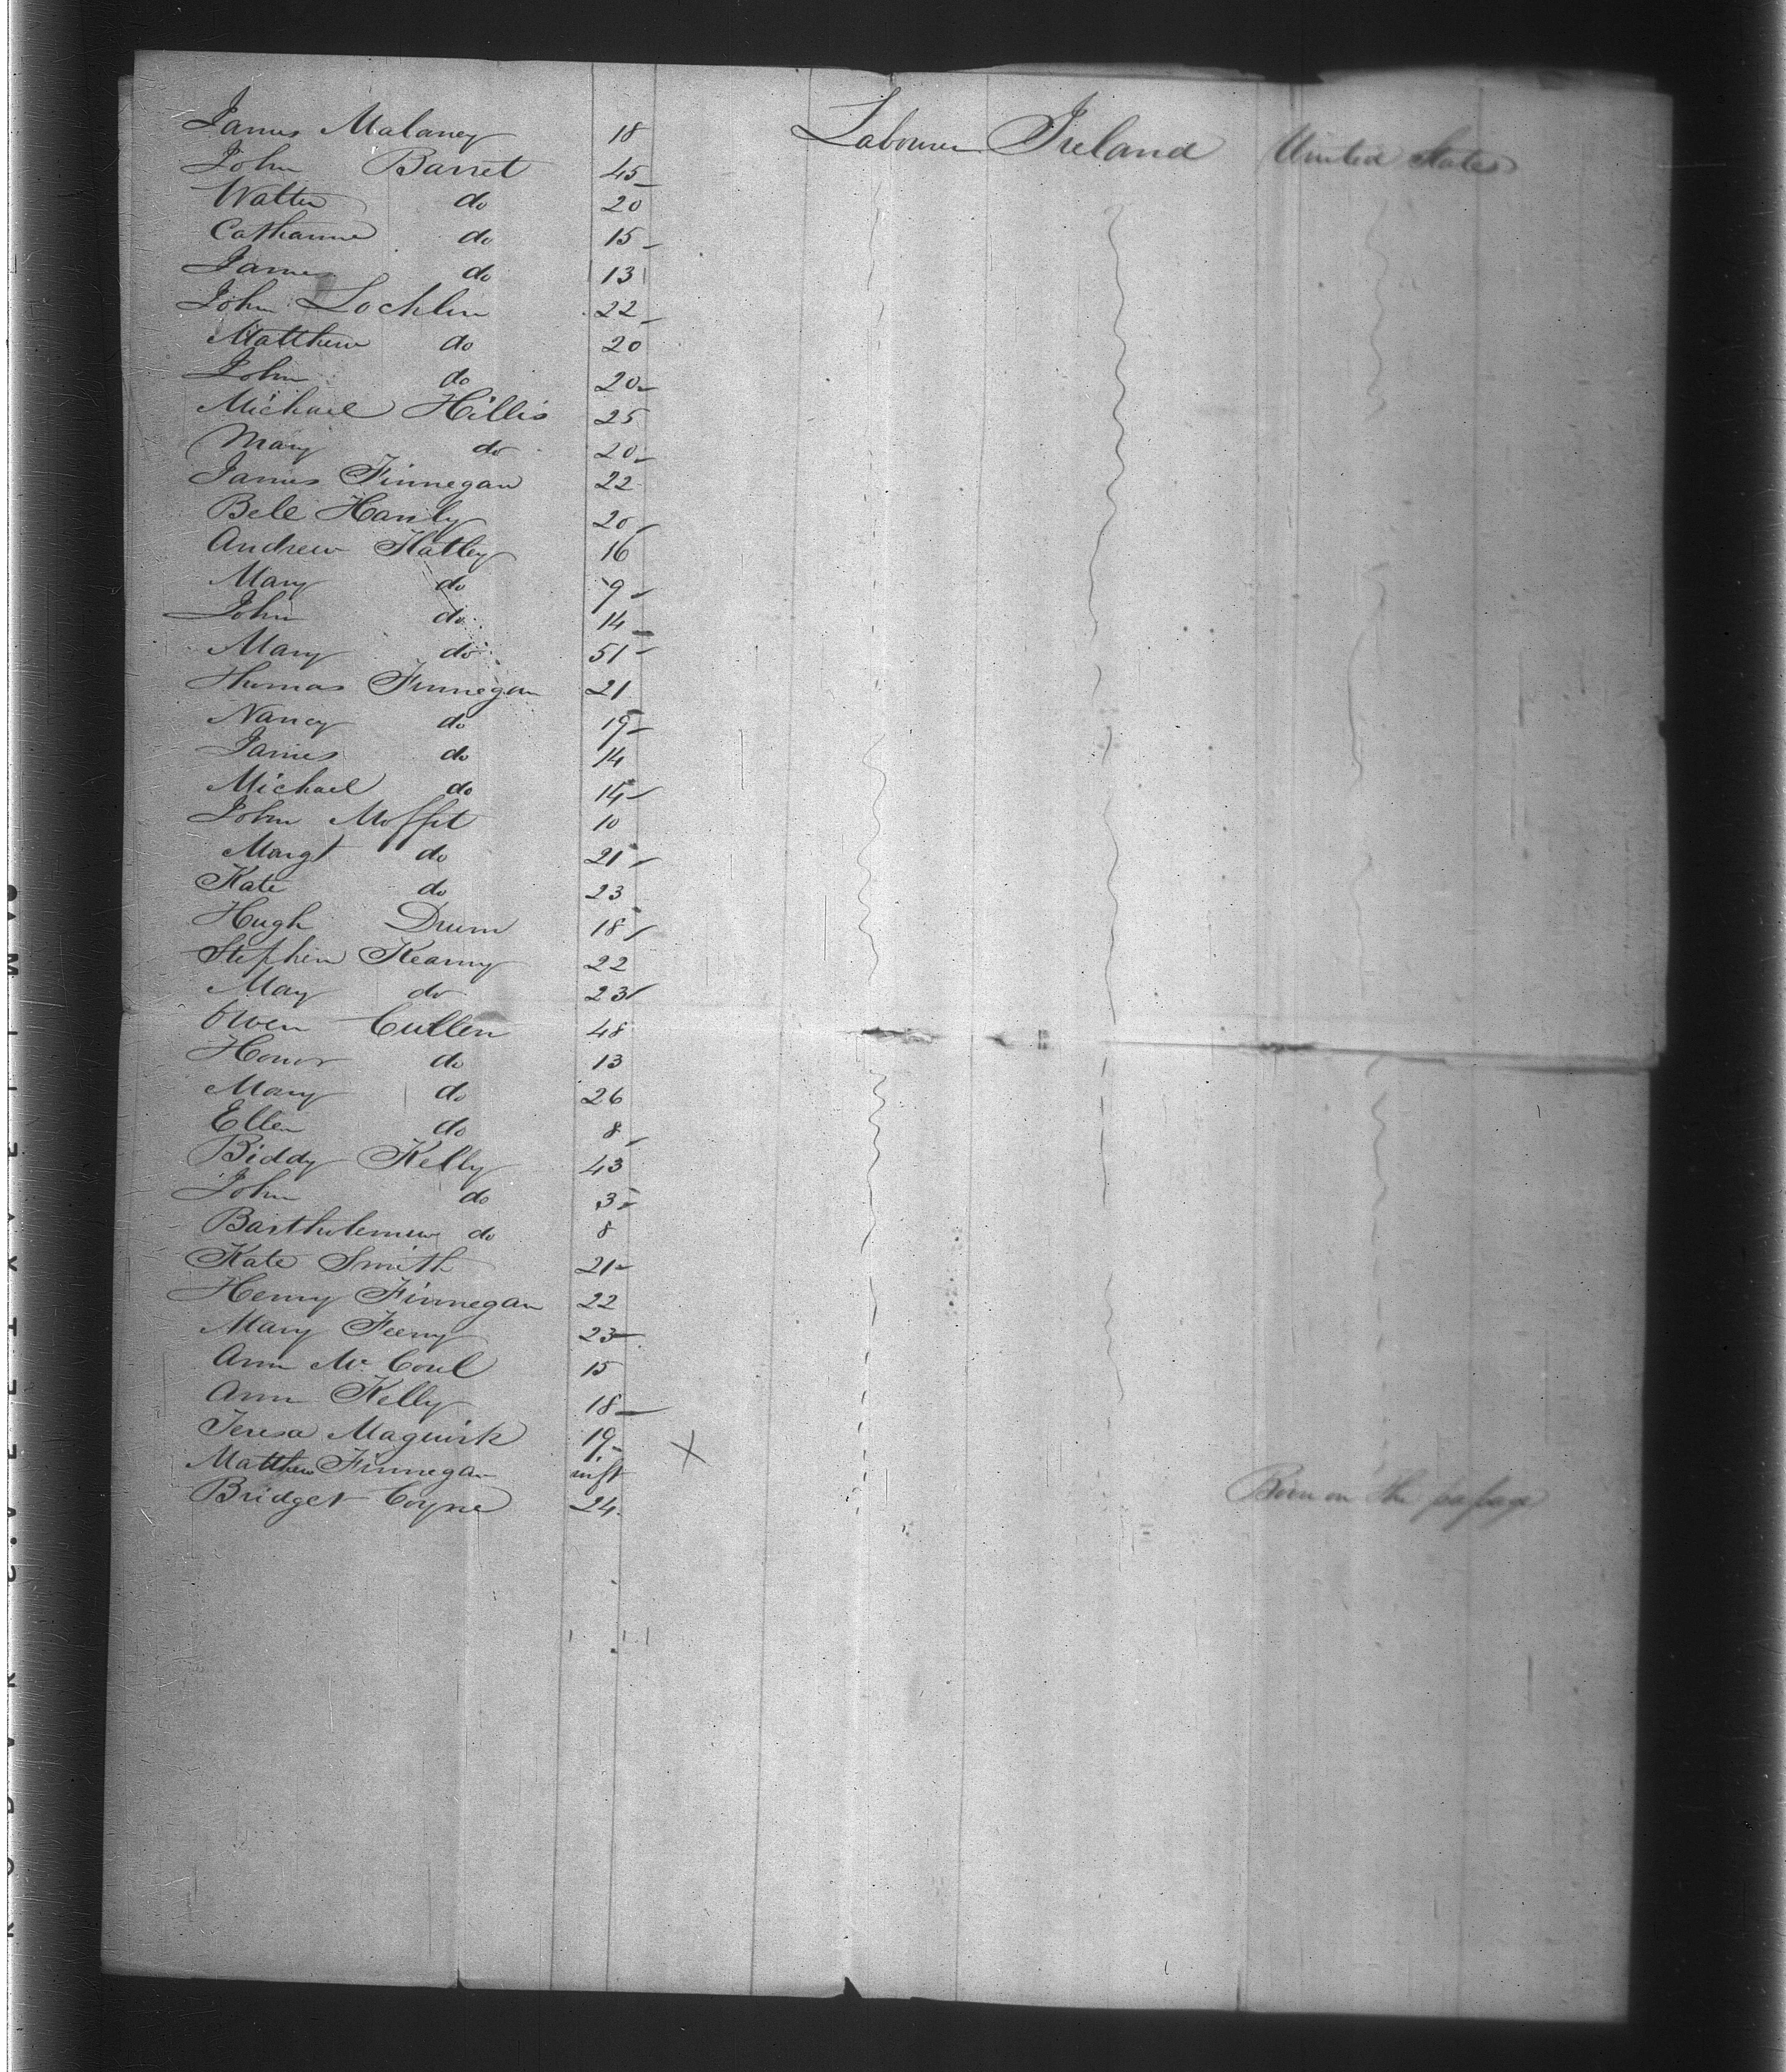 James Malaney 18 Labourer Ireland United States
John Barret 45
Walter do 20
Catharine do 15
James do 13
John Lochlin 22
Matthew do 20
John do 20
Michael Hillis 25
Mary do 20
James Finnegan 22
Bele Hanly 20
Andrew Flatley 16
Mary do 9
John do 14
Mary do 51
Thomas Finnegan 21
Nancy do 19
James do 14
Michael do 14
John Moffit 10
Margt do 21
Kate do 23
Hugh Drum 18
Stephen Kearny 22
Mary do 23
Owen Cullen 48
Honor do 13
Mary do 26
Ellen do 8
Biddy Kelly 43
John do 3
Bartholemew do 8
Kate Smith 21
Henry Finnegan 22
Mary Feeny 23
Ann Mc Coul 15
Ann Kelly 18
Teresa Maguirk 19 X
Matthew Finnegan inft Born on the passage
Bridget Coyne 24